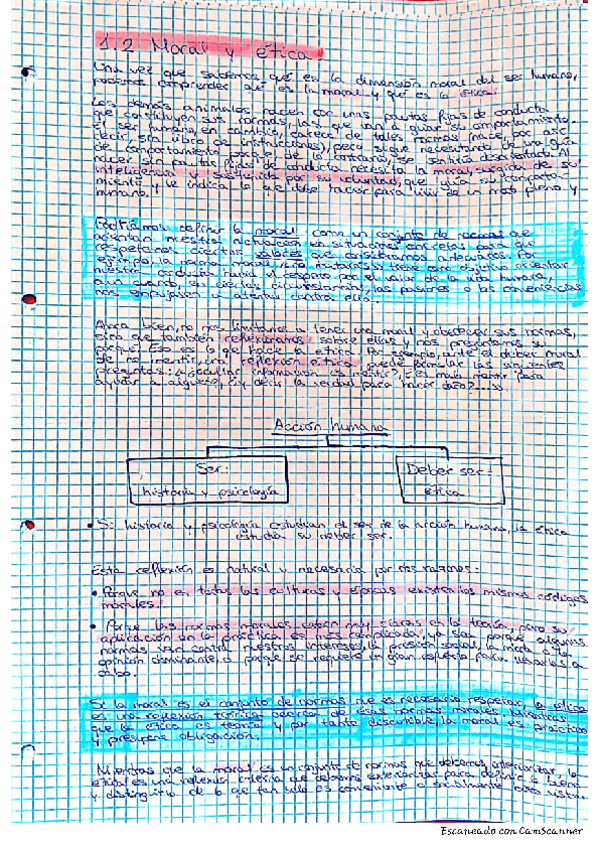 1.2 Moral y ética
Una vez que sabemos qué es la dimensión moral del ser humano,
podemos comprender qué es la moral y qué es la ética.
Los demás animales nacen con unas pautas fijas de conducta
que constituyen sus normas, las que van a guiar su comportamiento.
El ser humano, en cambio, carece de tales normas (nace, por así
decir, sin libro de instrucciones), pero sigue necesitando de una guía
de comportamiento porque, de lo contrario, se sentiría desorientado. Al
nacer sin pautas fijas de conducta necesita la moral, surgida de su
inteligencia y sostenida por su voluntad, que guía su comporta-
miento y le indica lo que debe hacer para vivir de un modo pleno y
humano.
Podríamos definir la moral como un conjunto de normas que
orientan nuestra actuación en situaciones concretas para que
respetemos ciertos valores que consideramos adecuados. Por
ejemplo, la norma moral "no matarás" tiene como objetivo orientar
nuestra conducta hacia el respeto por el valor de la vida humana
aun cuando, en ciertas circunstancias, las pasiones o las conveniencias
nos empujasen a atentar contra ella.
Ahora bien, no nos limitamos a tener una moral y obedecer sus normas,
sino que también reflexionamos sobre ellas y nos preguntamos su
porqué. Eso es lo que hace la ética. Por ejemplo, ante el deber moral
de no mentir, una reflexión ética puede formular las siguientes
preguntas: ¿ocultar información es mentir?, ¿es malo mentir para
ayudar a alguien?, ¿y decir la verdad para hacer daño?...
Acción humana
Ser:
historia y psicología
Deber ser:
ética
• Si historia y psicología estudian el ser de la acción humana, la ética
estudia su deber ser.
Esta reflexión es natural y necesaria por dos razones:
• Porque no en todas las culturas y épocas existen los mismos códigos
morales.
• Porque las normas morales están muy claras en la teoría pero su
aplicación en la práctica es más complicada, ya sea porque algunas
normas van contra nuestros intereses, la presión social, la
opinión dominante, o porque se requiere un gran esfuerzo para llevarlas a
cabo.
Si la moral es el conjunto de normas que es necesario respetar, la ética
es una reflexión teórica acerca de esas normas morales. Mientras
que la ética es teoría y por tanto discutible, la moral es práctica
y presupone obligación.
Mientras que la moral es un conjunto de normas que debemos, la
ética es una reflexión que debemos para definir lo bueno
y distinguirlo de lo que tan solo es conveniente o socialmente
Escaneado con CamScanner